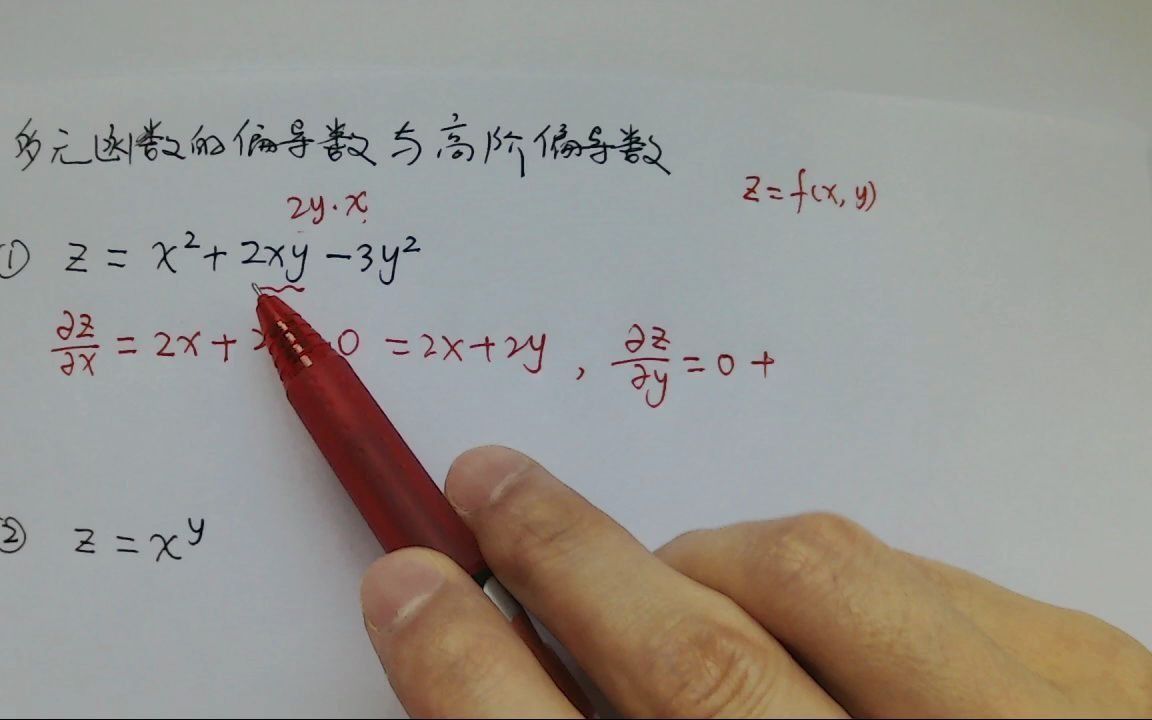 多元函数的偏导数与高阶偏导数
z = f(x, y)
2y · x
① z = x² + 2xy − 3y²
∂z/∂x = 2x + 0 = 2x + 2y , ∂z/∂y = 0 +
② z = x^y